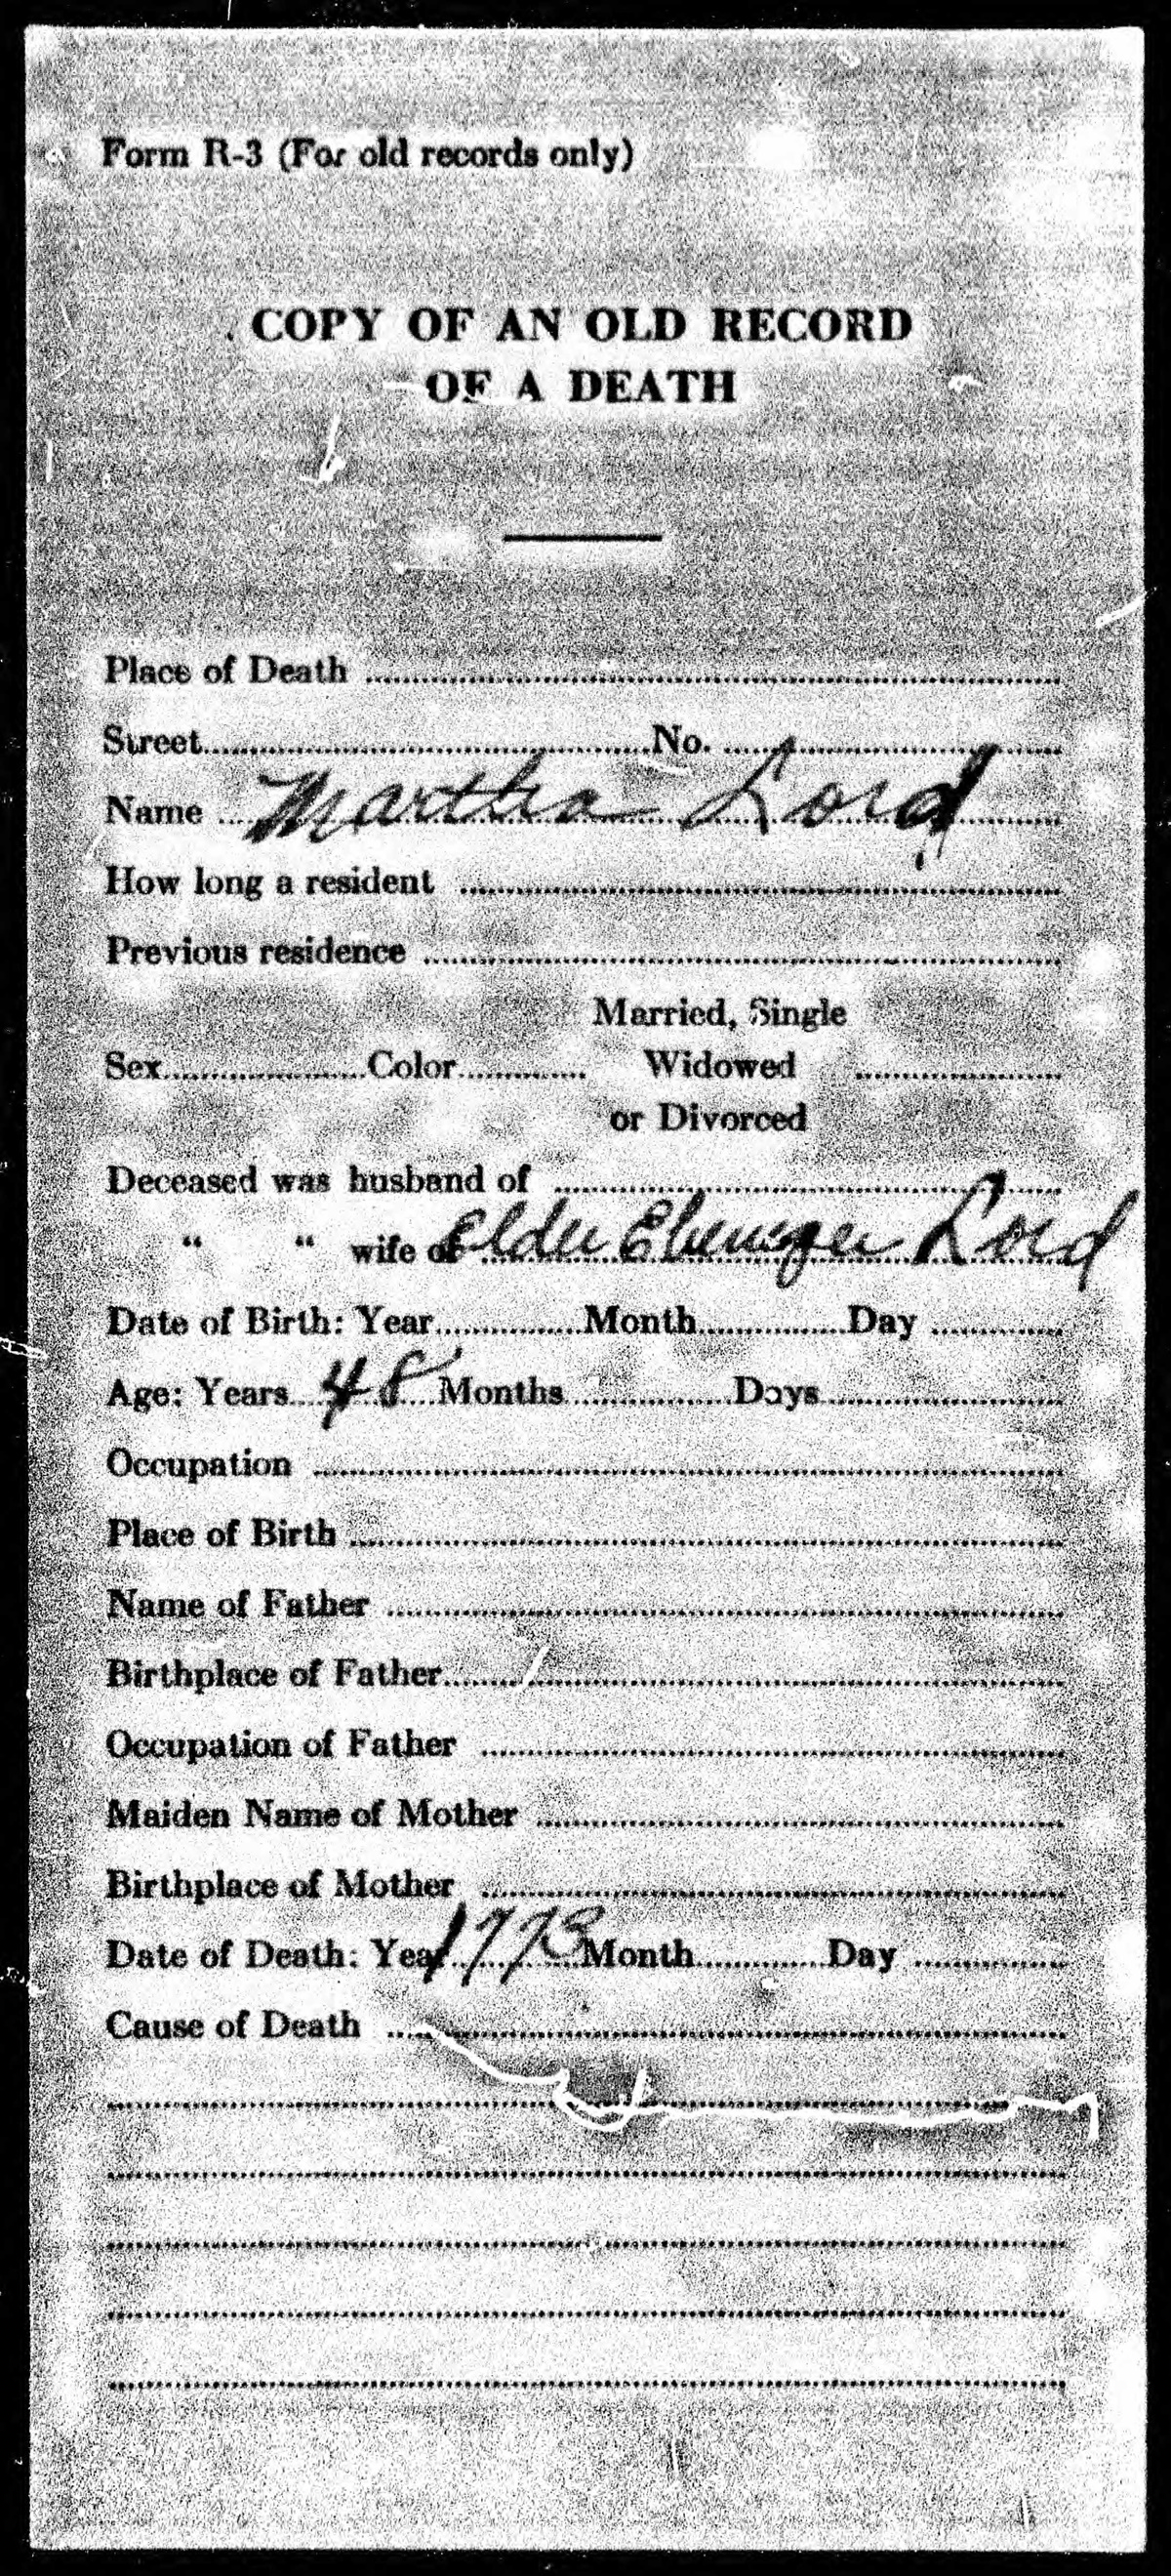 Form R-3 (For old records only)
COPY OF AN OLD RECORD
OF A DEATH
Place of Death
Street No.
Name Martha Lord
How long a resident
Previous residence
Married, Single
Sex Color Widowed
or Divorced
Deceased was husband of
" " wife of Elder Ebenezer Lord
Date of Birth: Year Month Day
Age: Years 48 Months Days
Occupation
Place of Birth
Name of Father
Birthplace of Father
Occupation of Father
Maiden Name of Mother
Birthplace of Mother
Date of Death: Year 1773 Month Day
Cause of Death